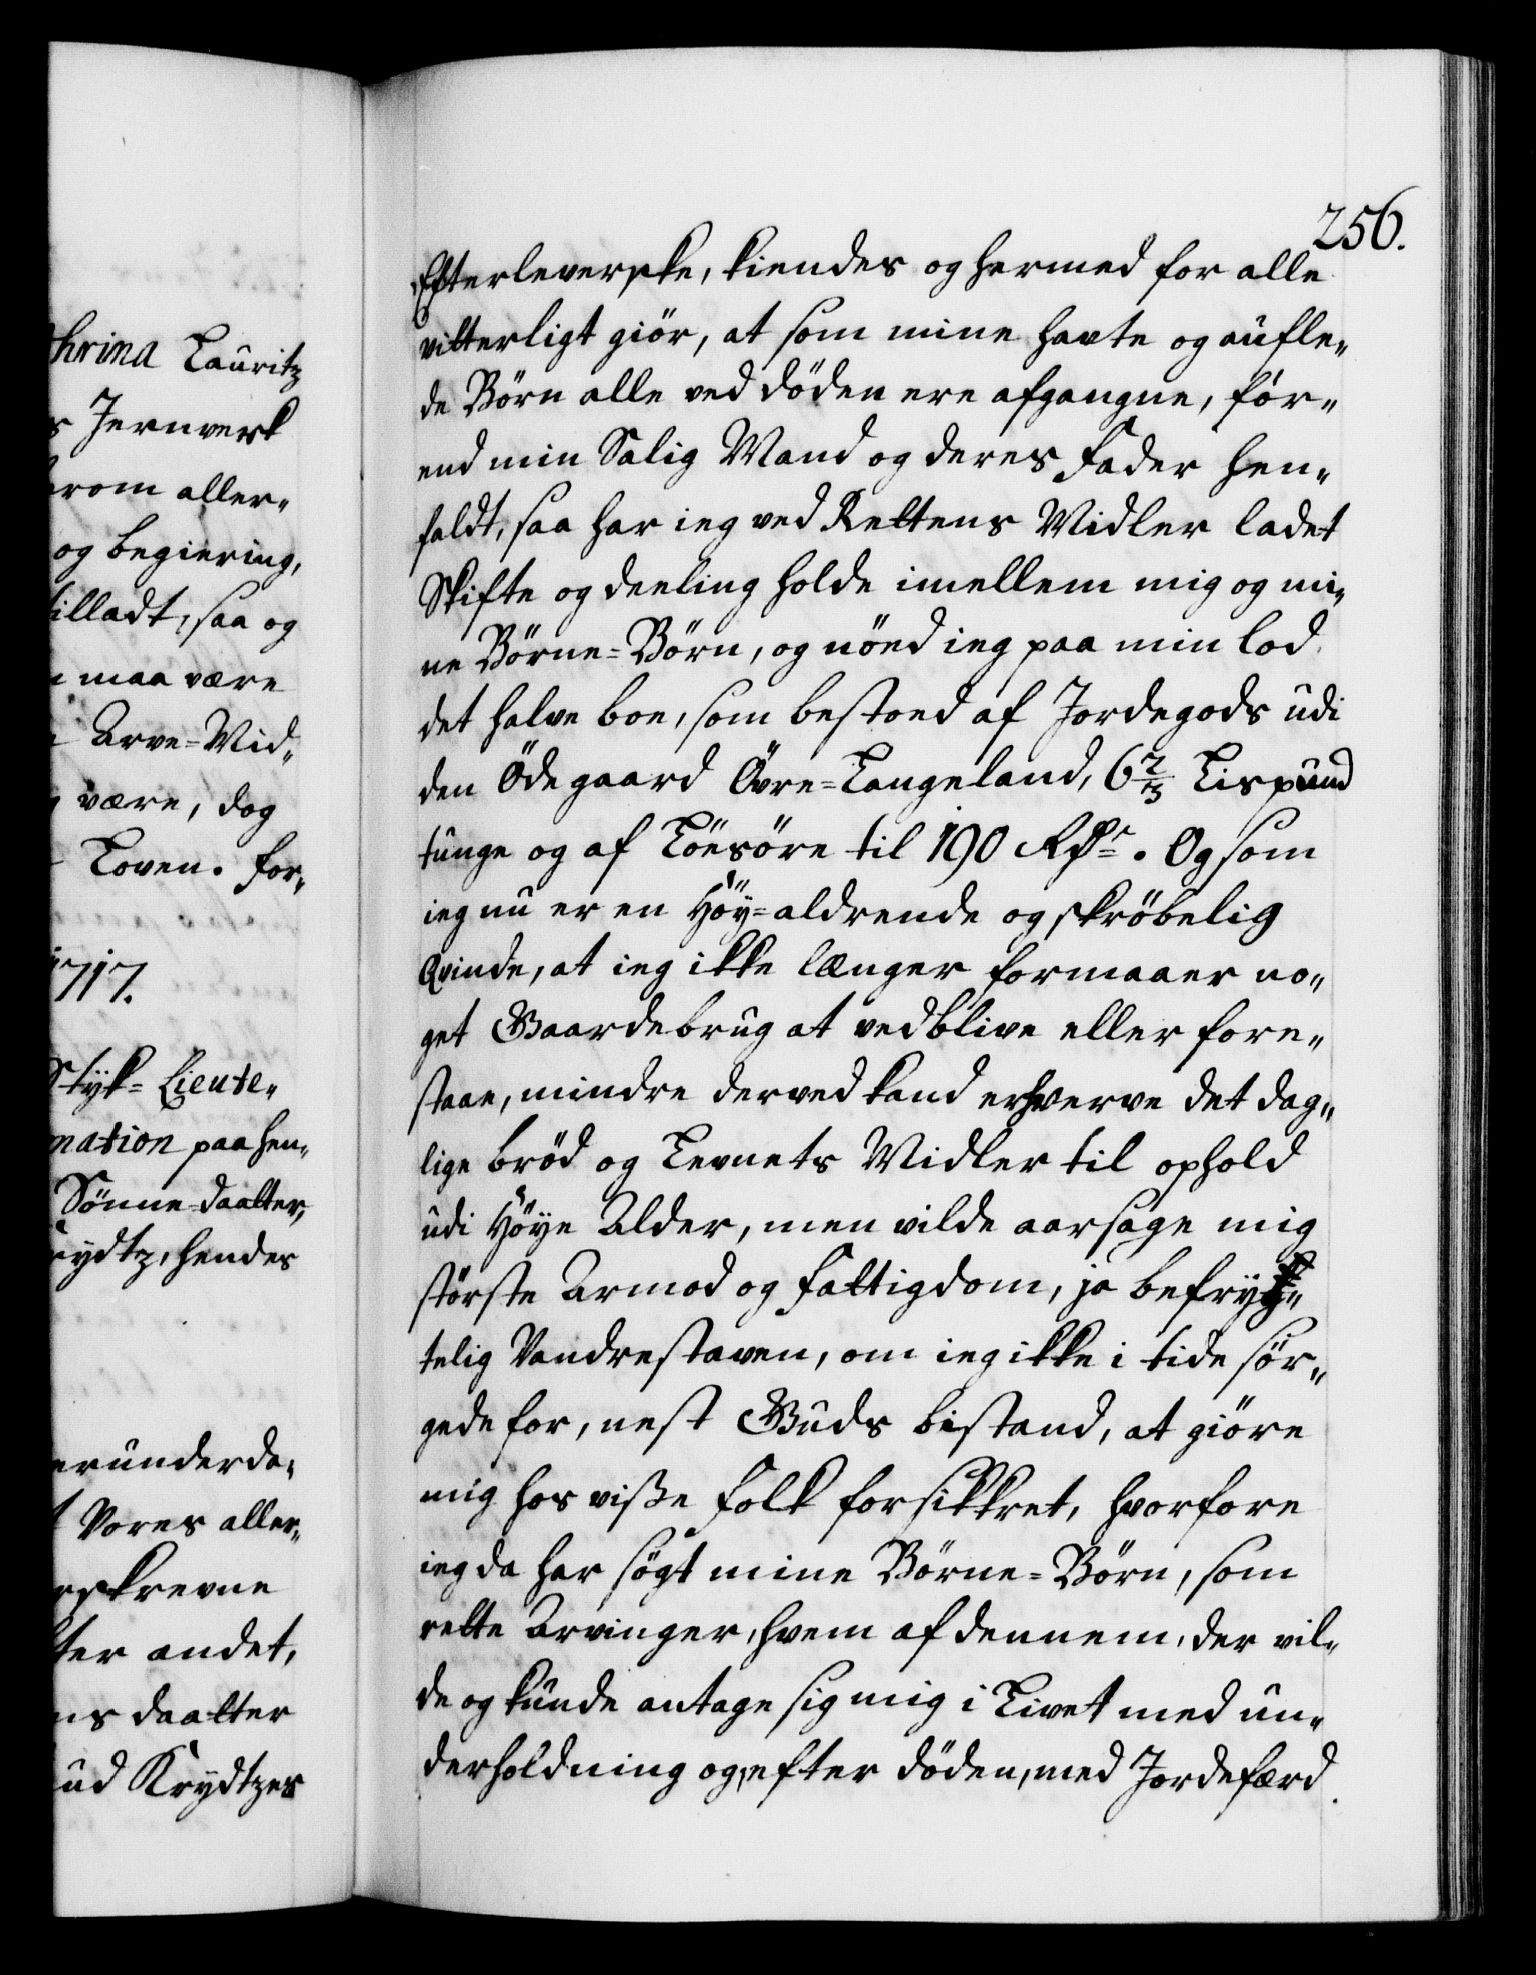 hrina Lauritz
s Jernverk
rom aller„
og begiering,
illadt, saa og
maa være
Arve=Mid„
være, dog
Loven. for„
1717.
Styk= Lieute„
mation paa hen„
Sönne=daatter,
rydtz, hendes
erunderda„
t Vores aller„
rskrevne
ter andet,
ns daatter
ud Krydtzes
256.
Efterleverske, kiendes og hermed for alle
vitterligt giör, at som mine havte og aufle„
de Börn alle ved döden ere afgangne, för„
end min Salig Mand og deres Fader hen„
faldt, saa har ieg ved Rettens Midler ladet
Skifte og deeling holde imellem mig og mi„
ne Börne=Börn, og nöed ieg paa min lod
det halve boe, som bestoed af Jordegods udi
den Ödegaard Övre=Langeland, 6 2/3 Lispund
tunge og af Löesöre til 190 Rdr. Og som
ieg nu er en Höy=aldrende og skröbelig
Qvinde, at ieg ikke længer formaaer no„
get Gaardebrug at vedblive eller fore„
staae, mindre derved kand erhverve det dag„
lige bröd og Levnets Midler til ophold
udi Höye Alder, men vilde aarsage mig
störste Armod og Fattigdom, ja befryg„
telig Vandrestaven, om ieg ikke i tide sör„
gede for, nest Guds bistand, at giöre
mig hos viße Folk forsikkret, hvorfore
ieg da har sögt mine Börne=Börn, som
rette Arvinger, hvem af dennem, der vil„
de og kunde antage sig mig i Livet med un„
derholdning og, efter döden, med Jordefærd